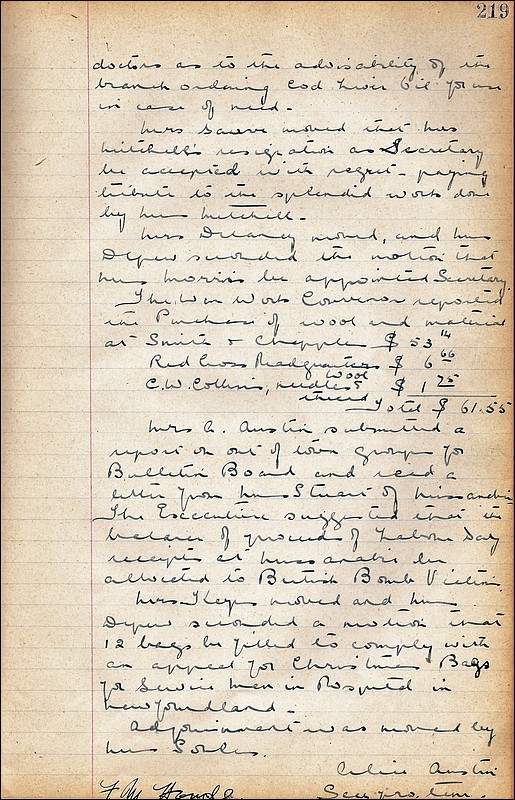 219
doctors as to the advisability of the
branch ordering Cod Liver Oil for use
in case of need.
Mrs Sauve moved that Mrs
Mitchell's resignation as Secretary
be accepted with regret - paying
tribute to the splendid work done
by Mrs Mitchell.
Mrs Delaney moved, and Mrs
Depew seconded the motion that
Mrs Morris be appointed Secretary.
The War Work Convenor reported
the Purchase of wool and material
at Smith & Chapples $ 53 14
Red Cross Headquarters $ 6 66
wool
C.W. Collins, needles & $ 1 75
thread
Total $ 61.55
Mrs A. Austin submitted a
report on out of town groups for
Bulletin Board and read a
letter from Mrs Stuart of Missanabie
The Executive suggested that the
balance of proceeds of Labour Day
receipts at Missanabie be
allocated to British Bomb Victims.
Mrs Keys moved and Mrs
Depew seconded a motion that
12 bags be filled to comply with
an appeal for Christmas Bags
for Service men in Hospital in
Newfoundland.
Adjournment was moved by
Mrs Soules.
Celia Austin
Secy pro. tem.